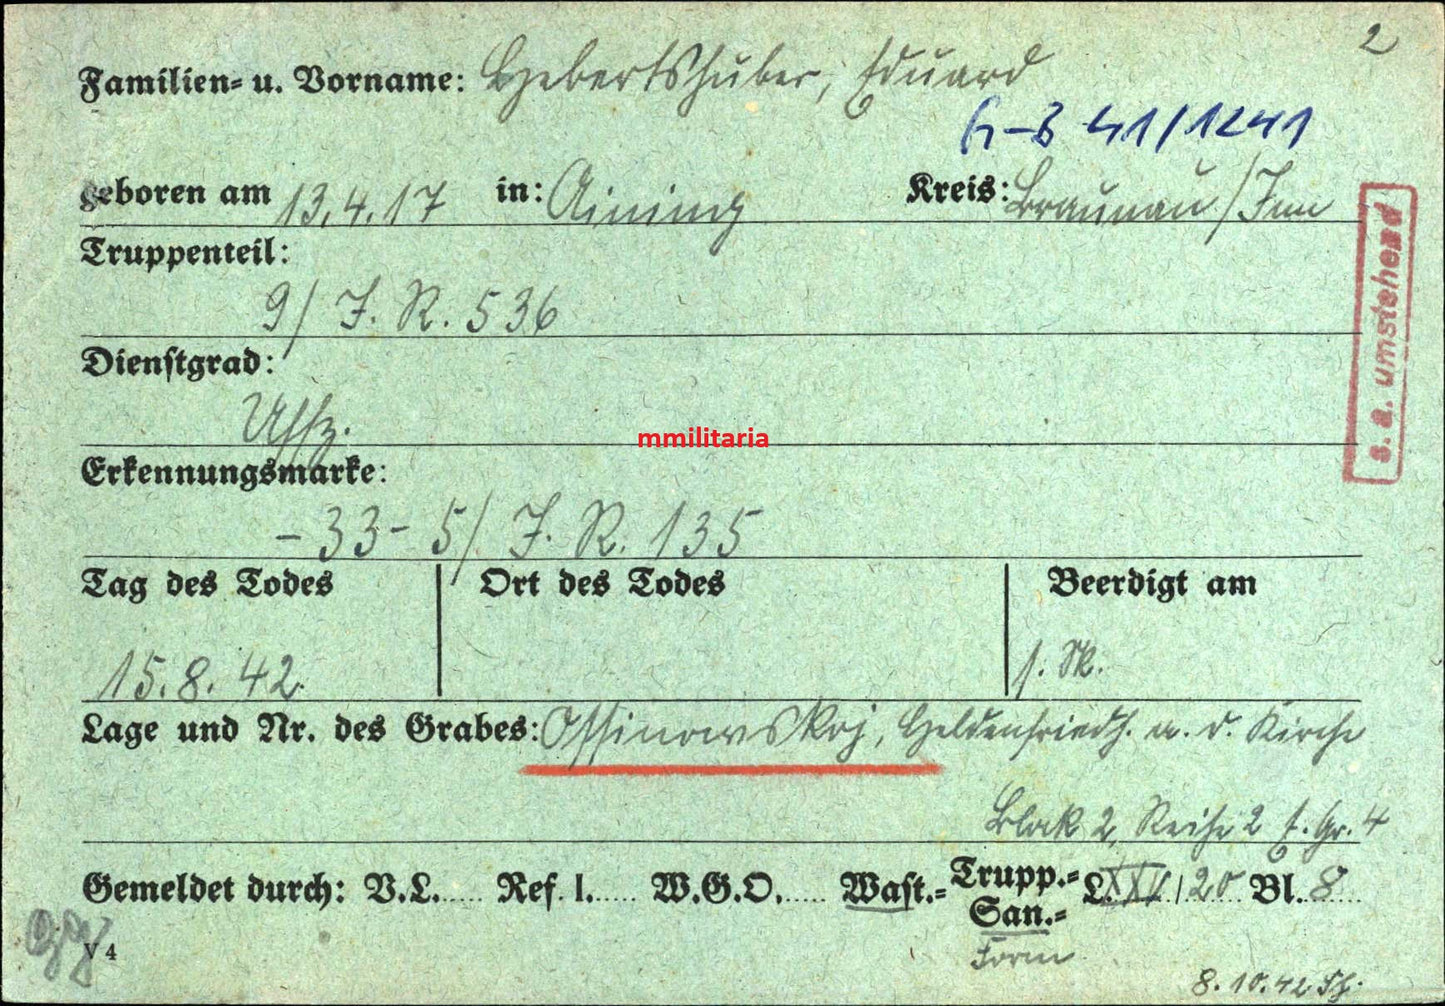 2
Familien= u. Vorname: Gebertshuber, Eduard
G-B 41/1241
geboren am 13.4.17 in: Aining Kreis: Braunau/Inn
Truppenteil:
9/ J. R. 536
Dienstgrad:
Uffz.
mmilitaria
Erkennungsmarke:
-33- 5/ J. R. 135
Tag des Todes Ort des Todes Beerdigt am
15.8.42.
Lage und Nr. des Grabes: Ossinowskoj, Heldenfriedh. a. d. Kirche
Block 2, Reihe 2 Gr. 4
Gemeldet durch: V.L..... Ref. I..... W.G.O...... Wast.= Trupp.= San.= L. XXI / 20 Bl. 8
Form
V 4
8.10.42
s. a. umstehend